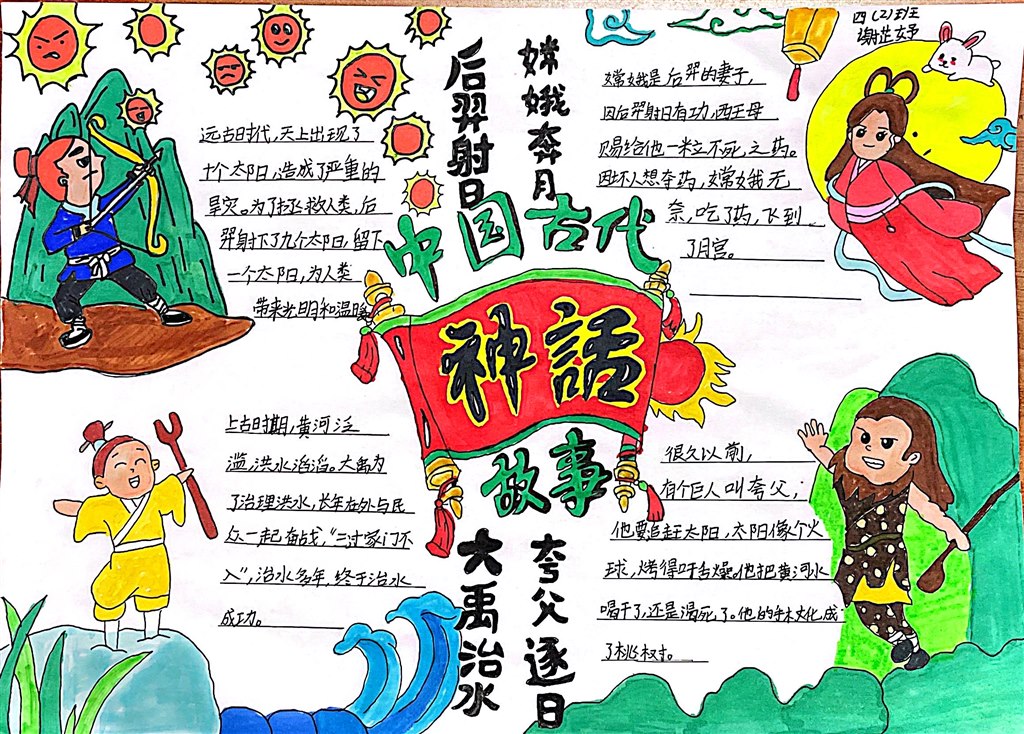 四（2）班
谢芷妤
后羿射日
嫦娥奔月
远古时代，天上出现了
十个太阳，造成了严重的
旱灾。为了拯救人类，后
羿射下了九个太阳，留下
一个太阳，为人类
带来光明和温暖
嫦娥是后羿的妻子，
因后羿射日有功，西王母
赐给他一粒不死之药。
因坏人想夺药，嫦娥无
奈，吃了药，飞到
了月宫。
中国古代
神话
故事
上古时期，黄河泛
滥，洪水滔滔。大禹为
了治理洪水，长年在外与民
众一起奋战，“三过家门不
入”，治水多年，终于治水
成功。
大禹治水
夸父逐日
很久以前，
有个巨人叫夸父；
他要追赶太阳，太阳像个火
球，烤得口干舌燥。他把黄河水
喝干了，还是渴死了。他的手杖化成
了桃树。